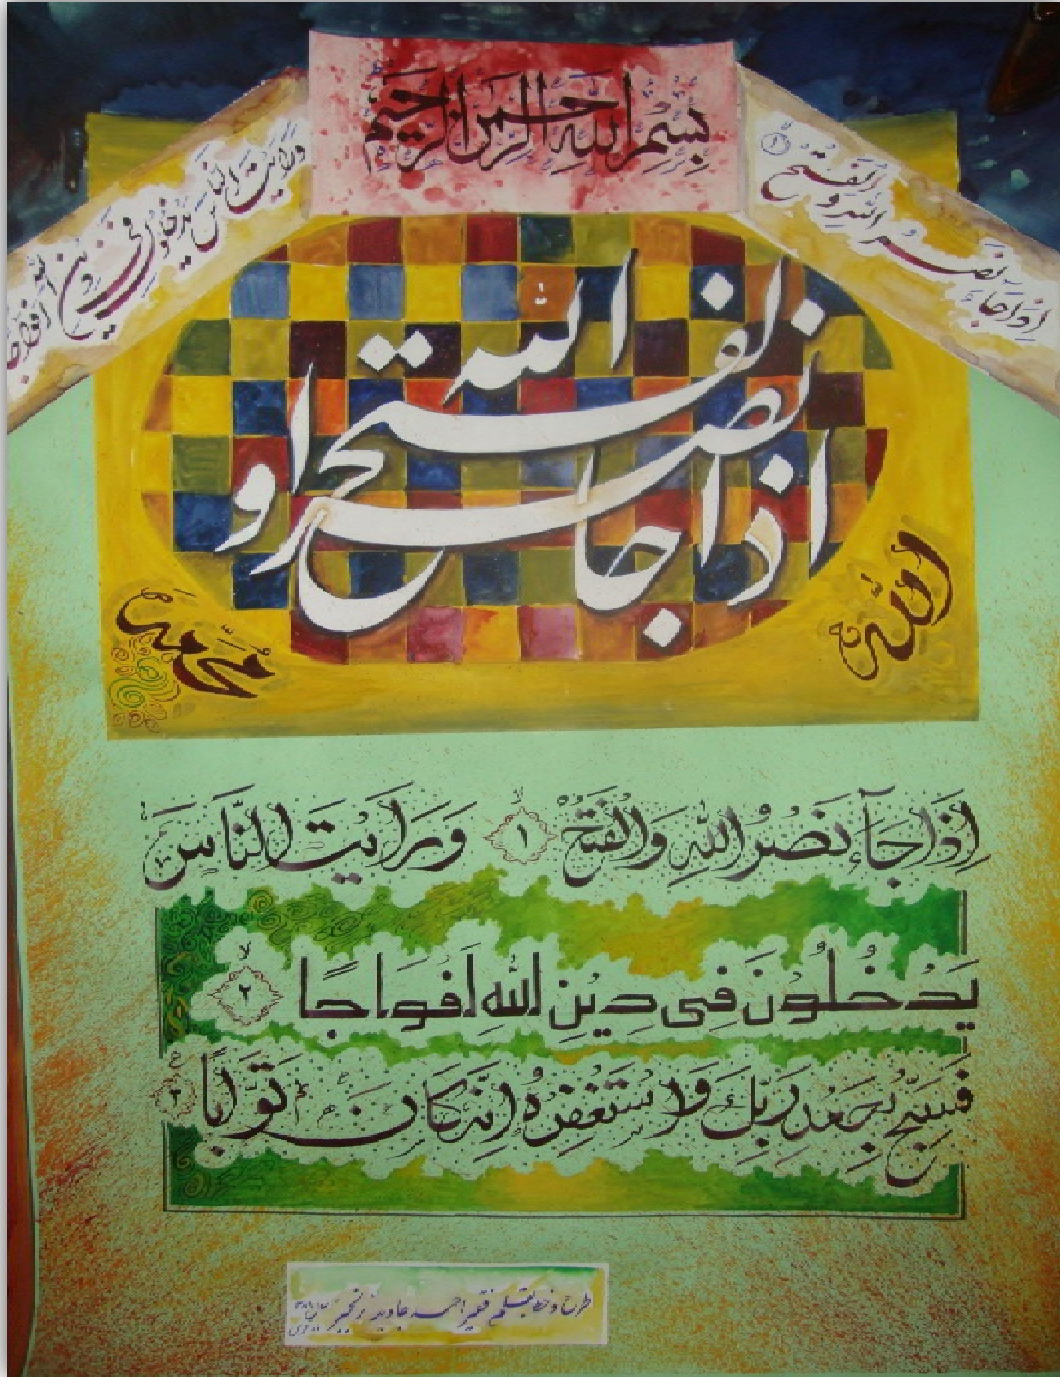 بِسْمِ اللهِ الرَّحْمٰنِ الرَّحِيْمِ
اِذَا جَآءَ نَصْرُ اللهِ وَ الْفَتْحُ ۱
وَرَاَيْتَ النَّاسَ يَدْخُلُوْنَ فِيْ دِيْنِ اللهِ اَفْوَاجًا
اذا جا نصر الله و الفتح
الله
محمد
اِذَا جَآءَ نَصْرُ اللهِ وَالْفَتْحُ ۱ وَ رَاَيْتَ النَّاسَ
يَدْخُلُوْنَ فِى دِيْنِ اللهِ اَفْوَاجًا ۲
فَسَبِّحْ بِحَمْدِ رَبِّكَ وَاسْتَغْفِرْهُ اِنَّهٗ كَانَ تَوَّابًا ۳
طرح و خط بقلم فقیر احمد جاوید